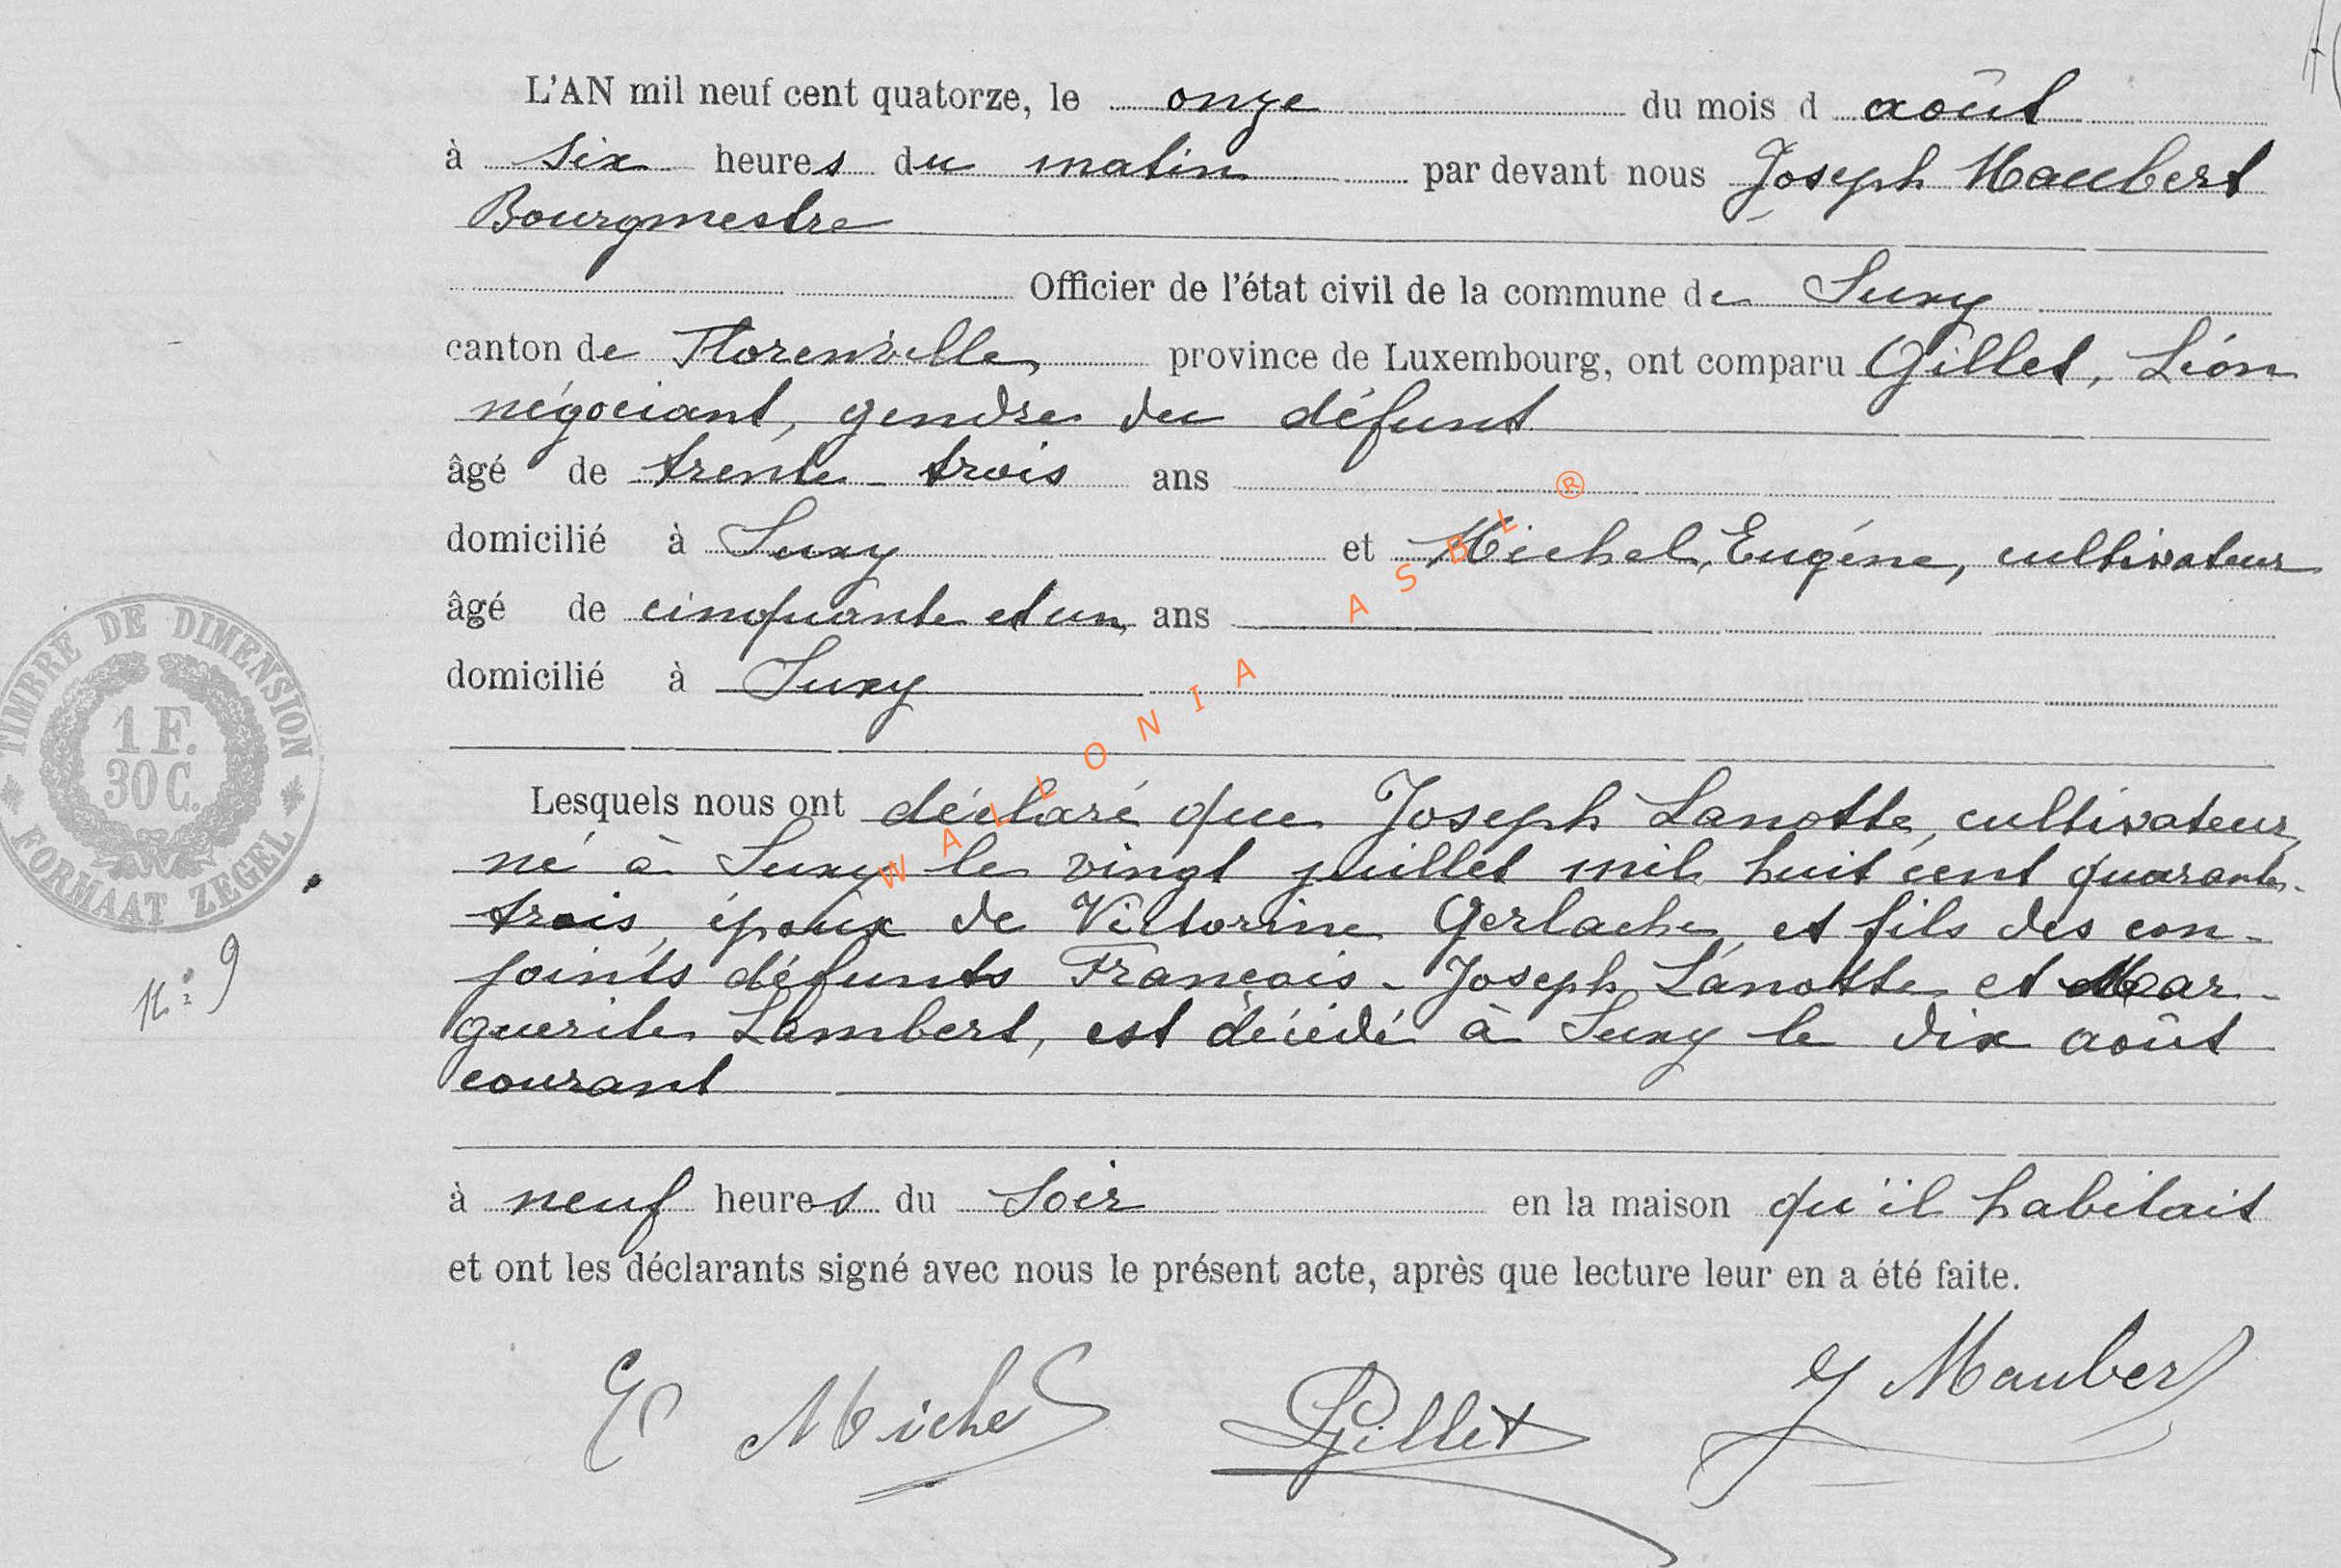 L'AN mil neuf cent quatorze, le onze du mois d août
à six heures du matin par devant nous Joseph Maubert
Bourgmestre
Officier de l'état civil de la commune de Suxy
canton de Florenville, province de Luxembourg, ont comparu Gillet, Léon
négociant, gendre du défunt
âgé de trente-trois ans
domicilié à Suxy et Michel, Eugène, cultivateur
âgé de cinquante et un ans
domicilié à Suxy
Lesquels nous ont déclaré que Joseph Lanotte, cultivateur,
né à Suxy le vingt juillet mil huit cent quarante-
trois, époux de Victorine Gerlache, et fils des con-
joints défunts François-Joseph Lanotte et Mar-
guerite Lambert, est décédé à Suxy le dix août
courant
à neuf heures du soir en la maison qu'il habitait
et ont les déclarants signé avec nous le présent acte, après que lecture leur en a été faite.
E Michel LGillet J Maubert
TIMBRE DE DIMENSION
1 F.
30 C.
FORMAAT ZEGEL
N° 9
WALLONIA ASBL ®